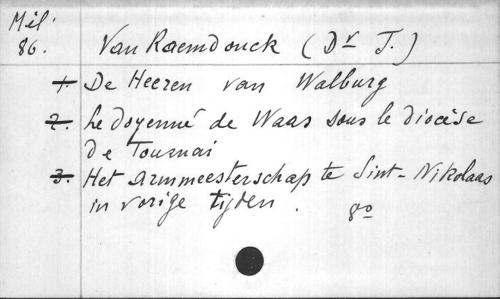 Mél.
86.
Van Raemdonck (Dr J.)
1. De Heeren van Walburg
2. Le Doyenné de Waas sous le diocèse
de Tournai
3. Het armmeesterschap te Sint-Nikolaas
in vorige tijden. 8o